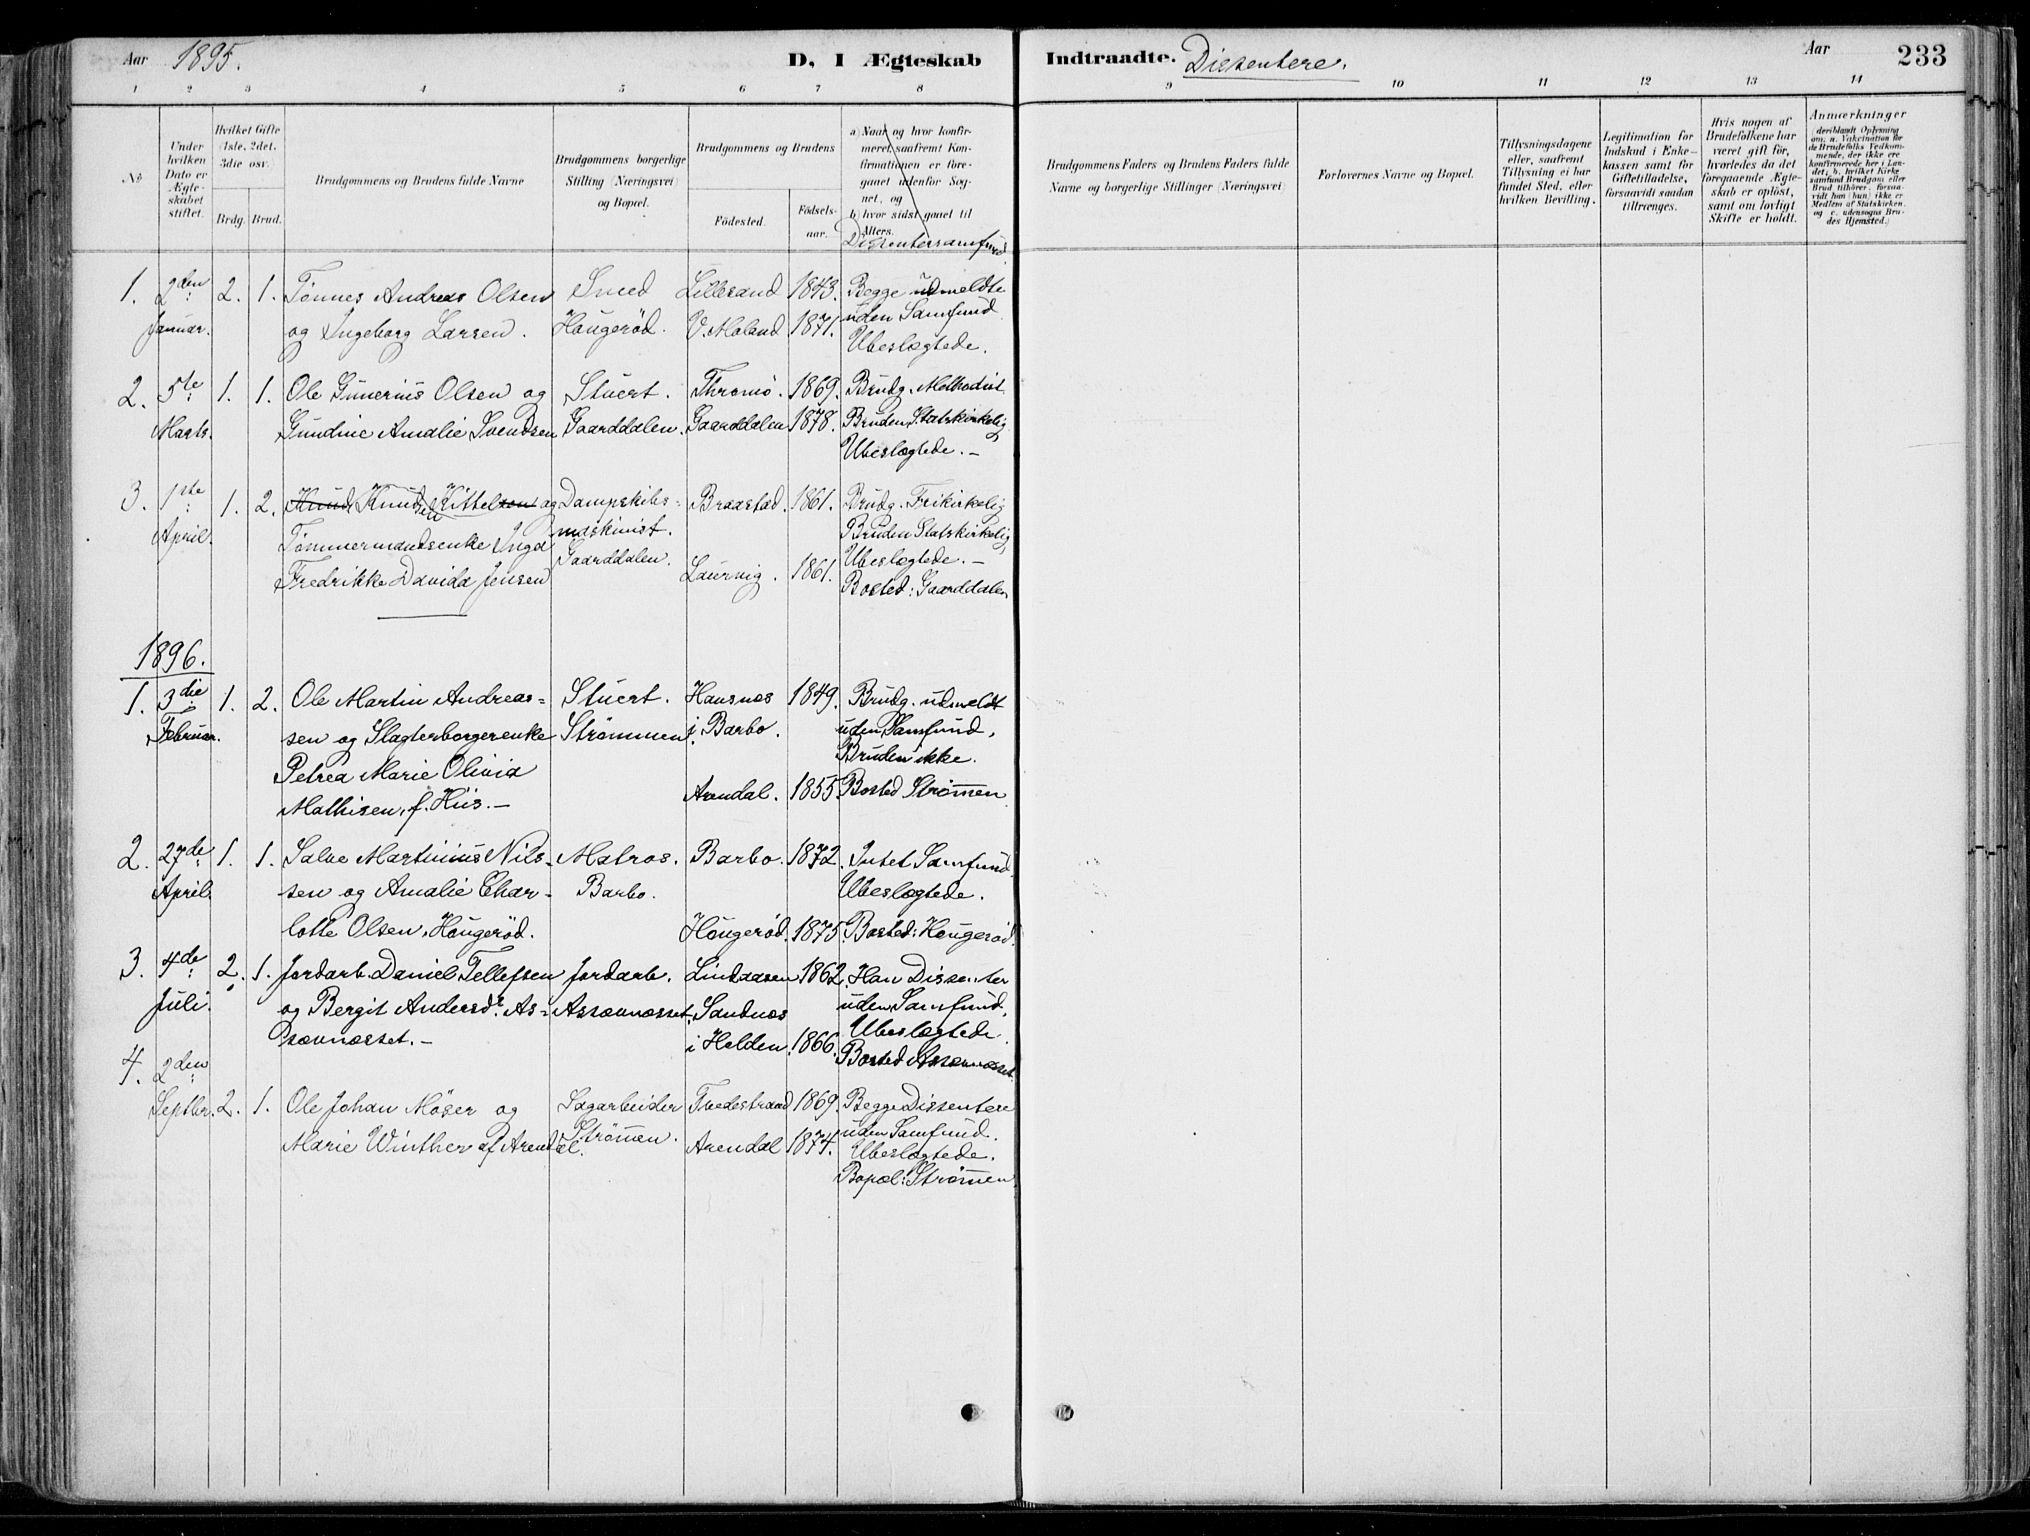 Aar 1895. D, I Ægteskab Indtraadte. Dissentere. Aar 233
1 2 3 4 5 6 7 8 9 10 11 12 13 14
No
Under hvilken Dato er Ægteskabet stiftet.
Hvilket Gifte (1ste, 2det, 3die osv.)
Brdg. Brud.
Brudgommens og Brudens fulde Navne
Brudgommens borgerlige Stilling (Næringsvei) og Bopæl.
Brudgommens og Brudens
Fødested.
Fødsels-aar.
a) Naar og hvor konfirmeret, saafremt Konfirmationen er foregaaet udenfor Sognet, og
b) hvor sidst gaaet til Alters.
Dissentersamfund.
Brudgommens Faders og Brudens Faders fulde Navne og borgerlige Stillinger (Næringsvei)
Forlovernes Navne og Bopæl.
Tillysningsdagene eller, saafremt Tillysning ei har fundet Sted, efter hvilken Bevilling.
Legitimation for Indskud i Enkekassen samt for Giftetilladelse, forsaavidt saadan tiltrænges.
Hvis nogen af Brudefolkene har været gift før, hvorledes da det foregaaende Ægteskab er opløst, samt om lovligt Skifte er holdt.
Anmærkninger
deriblandt Oplysning om: a. Vakcination for de Brudefolks Vedkommende, der ikke ere konfirmerede her i Landet; b. hvilket Kirkesamfund Brudgom eller Brud tilhører, forsaavidt han (hun) ikke er Medlem af Statskirken. og c. udensogns Brudes Hjemsted.)
1. 2den 2. 1. Tønnes Andreas Olsen Smed Lillesand 1843. Begge udmeldte
Januar. og Ingeborg Larsen. Hougerød. V. Moland 1871. uden Samfund
Ubeslægtede.
2. 5te 1. 1. Ole Gunerius Olsen og Stuert. Thromø. 1869. Brudg. Methodist
Marts. Gundine Amalie Svendsen Gaarddalen. Gaarddalen 1878. Bruden Statskirkelig
Ubeslægtede. –
3. 1ste 1. 2. Knud Knudsen Kittelsen og Dampskibs- Braastad. 1861. Brudg. Frikirkelig
April. maskinist. Bruden Statskirkelig
Tømmermandsenke Inga Gaarddalen. Ubeslægtede. –
Fredrikke Davida Jensen Laurvig. 1861. Bosted: Gaarddalen
1896.
1. 3die 1. 2. Ole Martin Andreas- Stuert. Hansnæs 1849. Brudg. udmeldt
Februar. sen og Slagterborgerenke Strømmen i Barbo. uden Samfund,
Petrea Marie Olivia Bruden ikke.
Mathisen, f. Hiis. – Arendal. 1855. Bosted Strømen
2. 27de 1. 1. Salve Martinius Nils- Matros. Barbo. 1872. Intet Samfund.
April. sen og Amalie Char- Barbo. Ubeslægtede.
lotte Olsen, Hougerød. Hougerød. 1875. Bosted: Hougerød.
3. 4de 2. 1. Jordarb. Daniel Tellefsen Jordarb. Lindaasen 1862. Han Dissenter
Juli. og Bergit Andersdr. As- Assævnæsset. Sandnæs uden Samfund,
sævnæsset. – i Holden. 1866. Ubeslægtede.
4. 2den Bosted Assævnæsset.
Septbr. 2. 1. Ole Johan Møser og Sagarbeider Tvedestrand 1869. Begge Dissentere
Strømen. uden Samfund.
Marie Winther af Arendal. Arendal 1874. Ubeslægtede.
Bopæl: Strømen